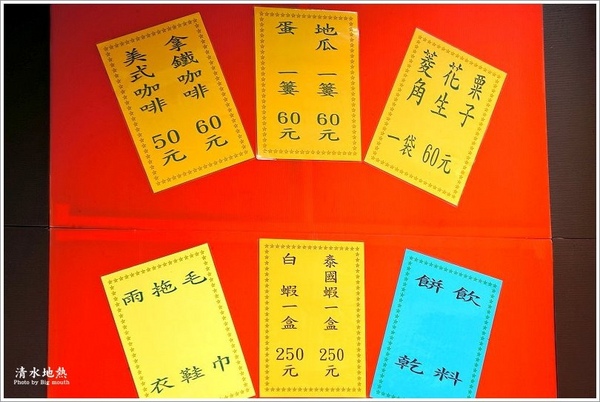 拿鐵咖啡 60元
美式咖啡 50元
地瓜 一簍 60元
蛋 一簍 60元
栗子
花生
菱角
一袋 60元
毛巾
拖鞋
雨衣
泰國蝦一盒 250元
白蝦一盒 250元
飲料
餅乾
清水地熱
Photo by Big mouth